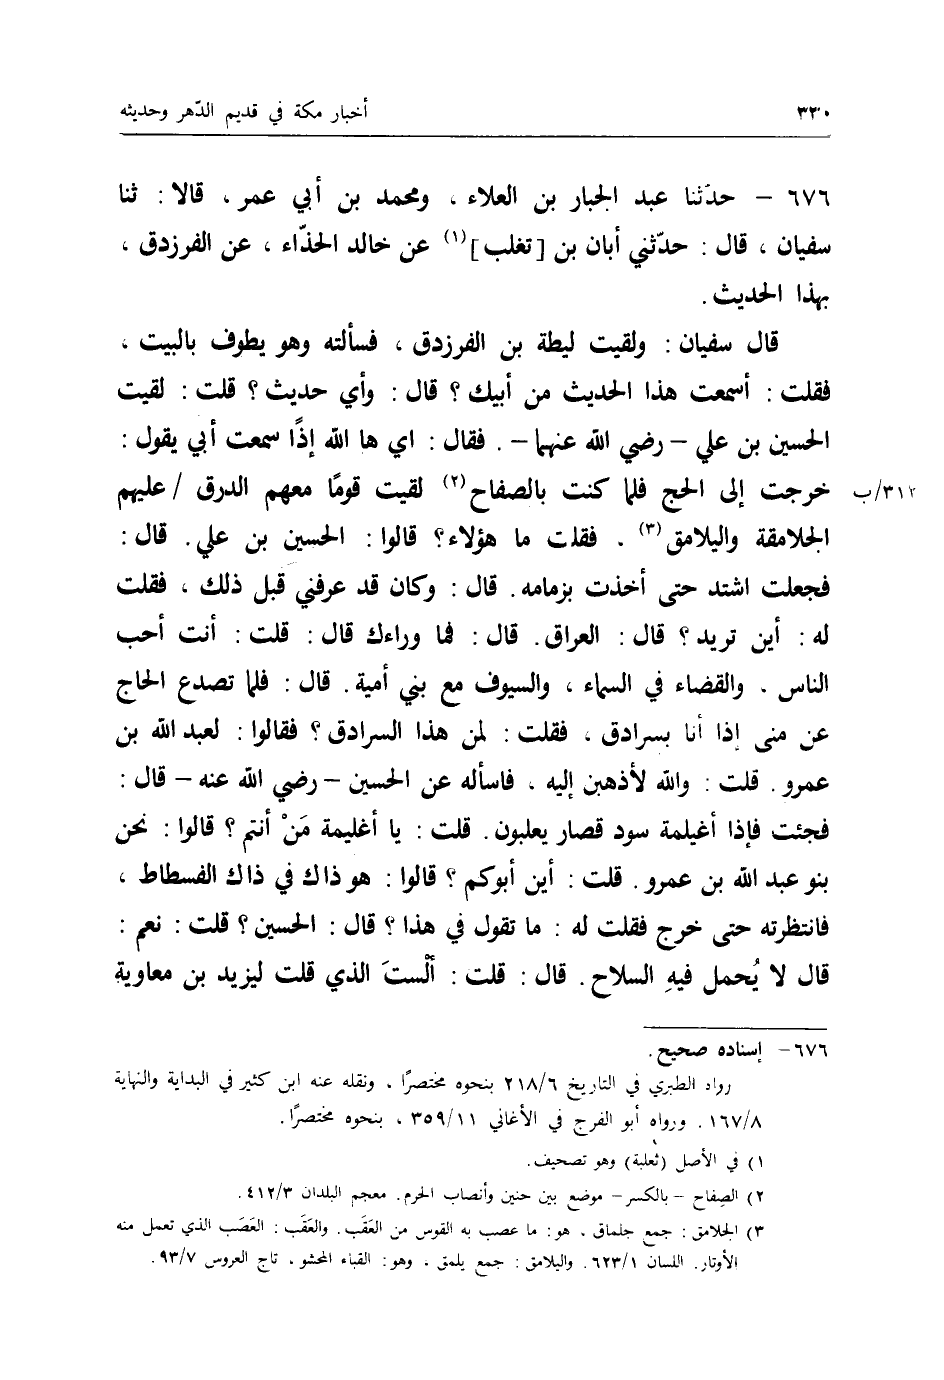 ٣٣٠ أخبار مكة في قديم الدّهر وحديثه
٦٧٦ – حدّثنا عبد الجبار بن العلاء ، ومحمد بن أبي عمر ، قالا : ثنا
سفيان ، قال : حدّثني أبان بن [تغلب](١) عن خالد الحذّاء ، عن الفرزدق ،
بهذا الحديث .
قال سفيان : ولقيت ليطة بن الفرزدق ، فسألته وهو يطوف بالبيت ،
فقلت : أسمعت هذا الحديث من أبيك ؟ قال : وأي حديث ؟ قلت : لقيت
الحسين بن علي – رضي الله عنهما – . فقال : اي ها الله إذًا سمعت أبي يقول :
خرجت إلى الحج فلما كنت بالصفاح(٢) لقيت قومًا معهم الدرق / عليهم ٣١٢/ب
الجلامقة واليلامق(٣) . فقلت ما هؤلاء؟ قالوا : الحسين بن علي . قال :
فجعلت اشتد حتى أخذت بزمامه . قال : وكان قد عرفني قبل ذلك ، فقلت
له : أين تريد ؟ قال : العراق . قال : فما وراءك قال : قلت : أنت أحب
الناس . والقضاء في السماء ، والسيوف مع بني أمية . قال : فلما تصدع الحاج
عن منى إذا أنا بسرادق ، فقلت : لمن هذا السرادق ؟ فقالوا : لعبد الله بن
عمرو . قلت : والله لأذهبن إليه ، فاسأله عن الحسين – رضي الله عنه – قال :
فجئت فإذا أغيلمة سود قصار يعلبون . قلت : يا أغليمة مَنْ أنتم ؟ قالوا : نحن
بنو عبد الله بن عمرو . قلت : أين أبوكم ؟ قالوا : هو ذاك في ذاك الفسطاط ،
فانتظرته حتى خرج فقلت له : ما تقول في هذا ؟ قال : الحسين ؟ قلت : نعم :
قال لا يُحمل فيهِ السلاح . قال : قلت : ألْستَ الذي قلت ليزيد بن معاوية
٦٧٦– إسناده صحيح .
رواد الطبري في التاريخ ٢١٨/٦ بنحوه مختصرًا . ونقله عنه ابن كثير في البداية والنهاية
١٦٧/٨ . ورواه أبو الفرج في الأغاني ٣٥٩/١١ ، بنحوه مختصرًا .
١) في الأصل (ثعلبة) وهو تصحيف .
٢) الصِفاح – بالكسر – موضع بين حنين وأنصاب الحرم . معجم البلدان ٤١٢/٣ .
٣) الجلامق : جمع جلماق ، هو : ما عصب به القوس من العَقَب . والعَقَب : العَصَب الذي تعمل منه
الأوتار . اللسان ٦٢٣/١ . واليلامق : جمع يلمق ، وهو : القباء المحشو ، تاج العروس ٩٣/٧ .